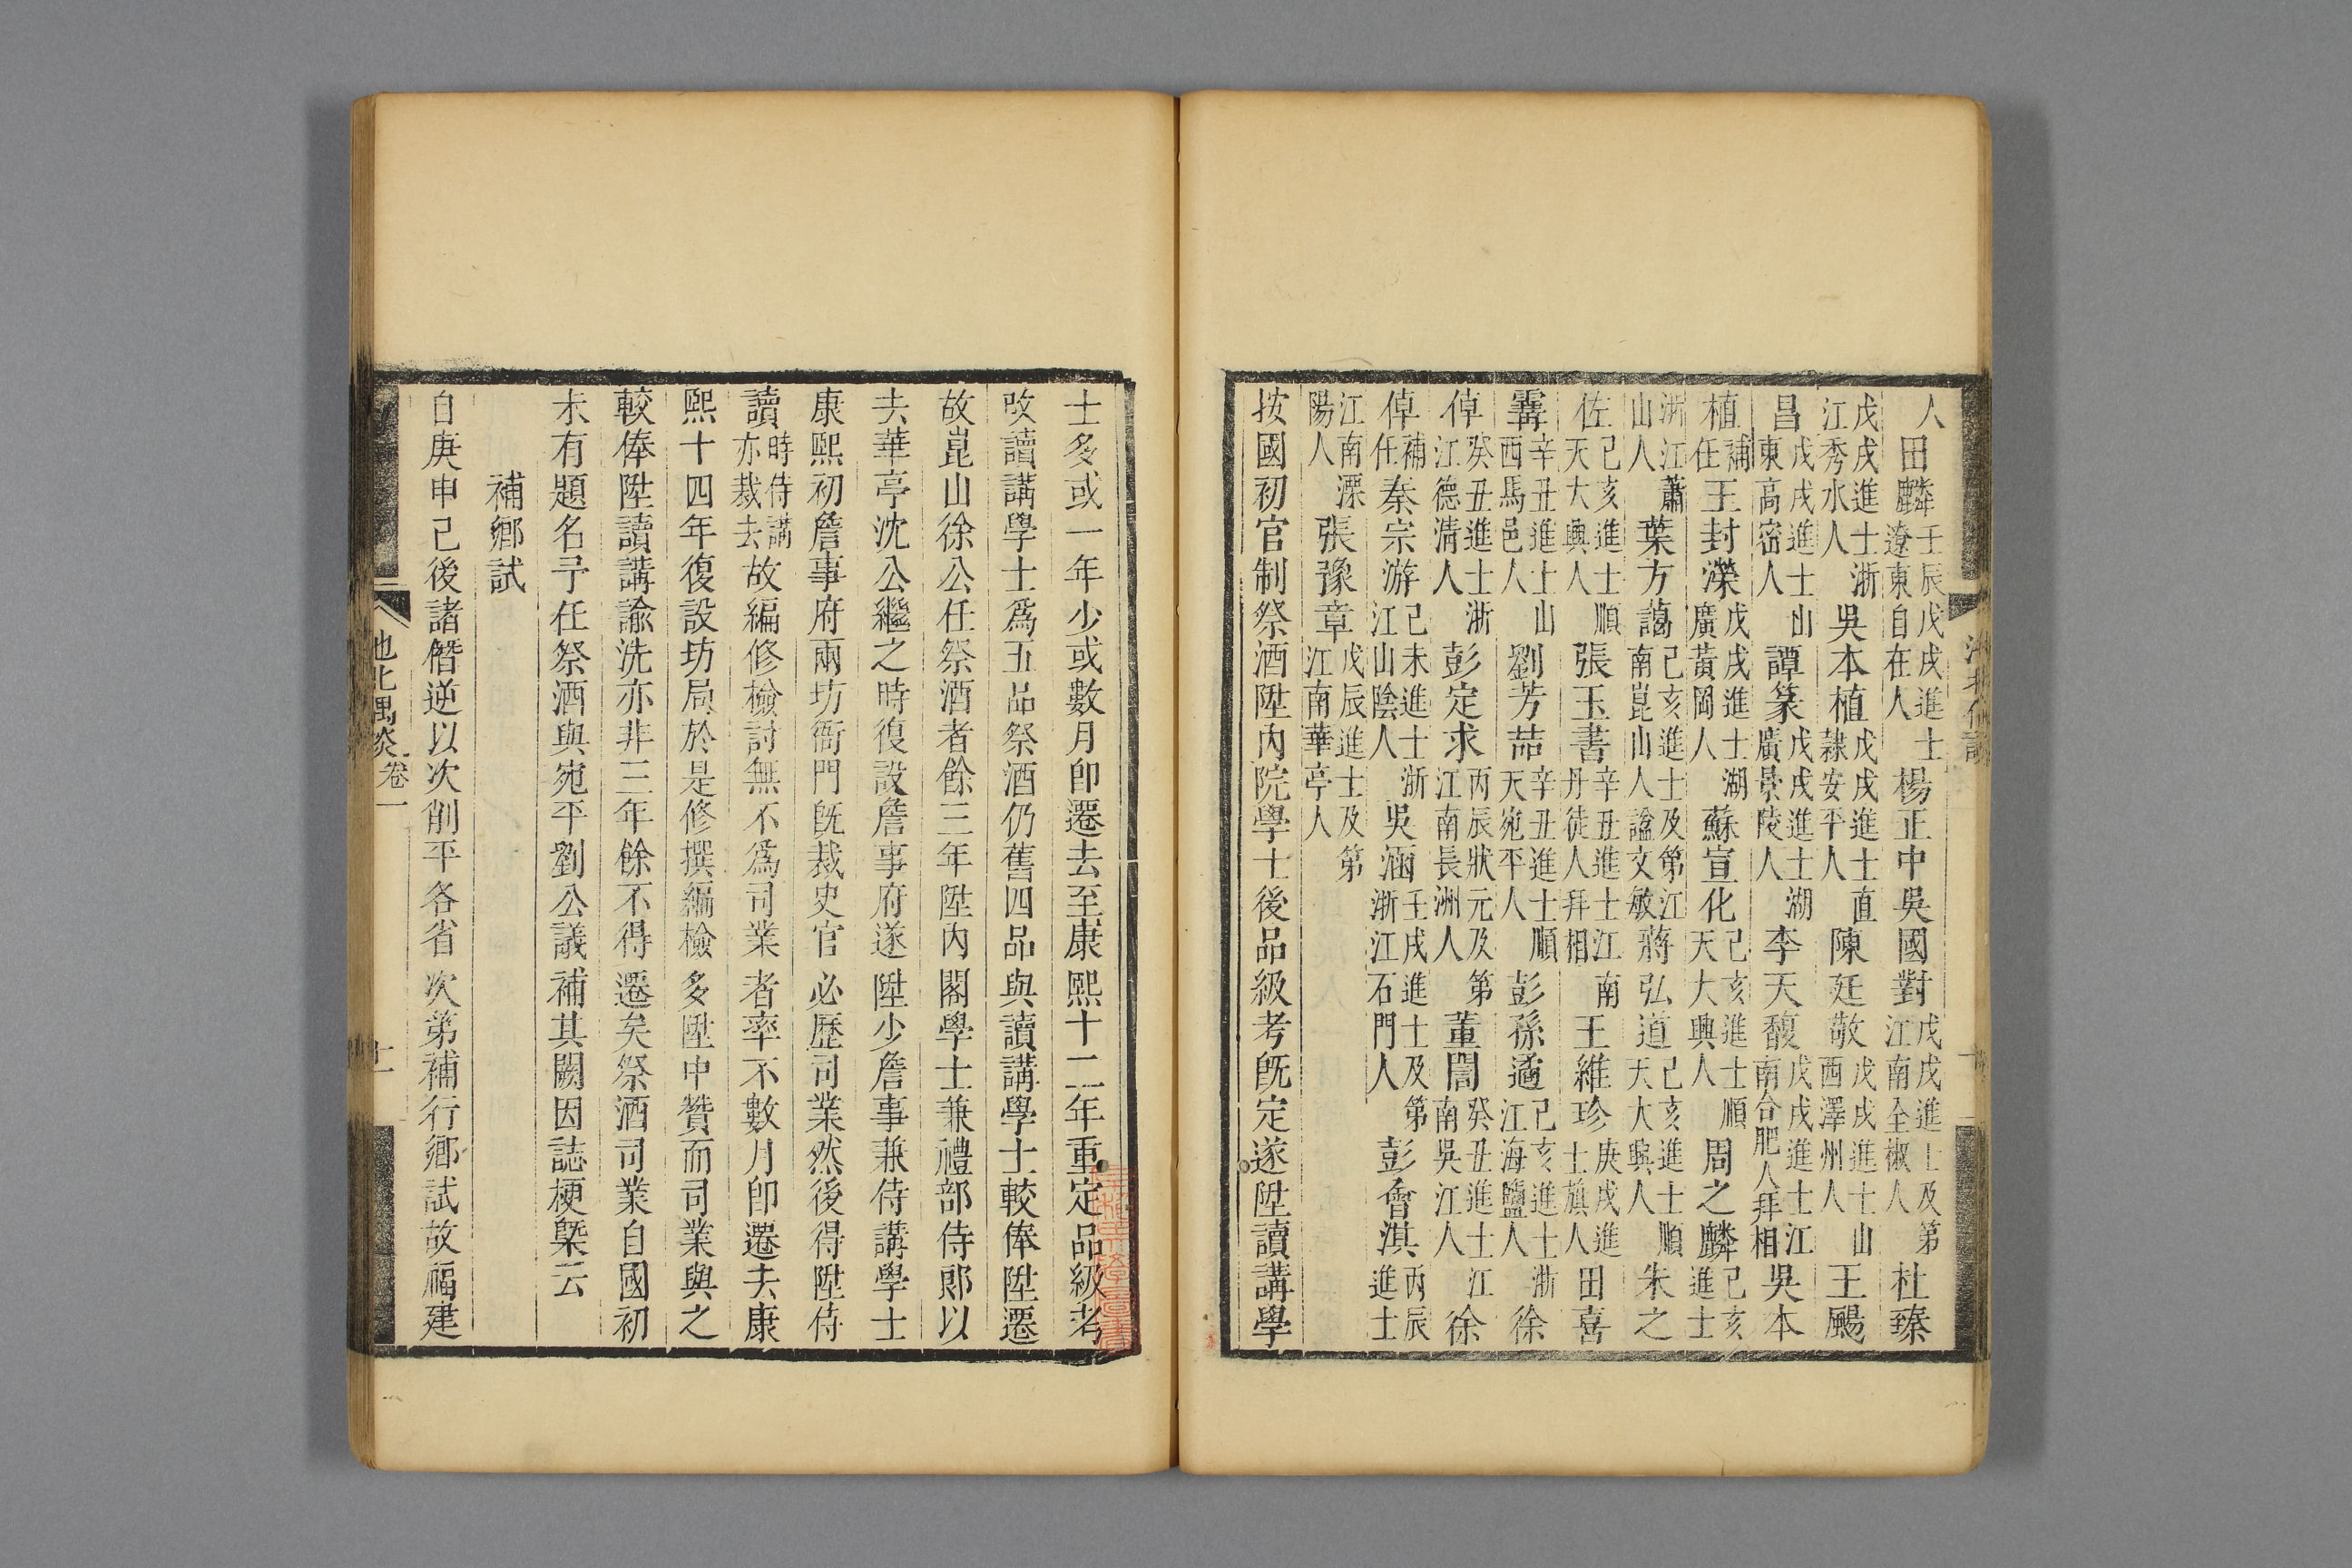 人田麟壬辰戊戌進士遼東自在人楊正中吳國對戊戌進士及第江南全椒人杜臻
戊戌進士浙江秀水人吳本植戊戌進士直隸安平人陳廷敬戊戌進士山西澤州人王颺
昌戊戌進士山東高密人譚篆戊戌進士湖廣景陵人李天馥戊戌進士江南合肥人拜相吳本
植補任王封濚戊戌進士湖廣黃岡人蘇宣化己亥進士順天大興人周之麟己亥進士
浙江蕭山人葉方藹己亥進士及第江南崑山人諡文敏蔣弘道己亥進士順天大興人朱之
佐己亥進士順天大興人張玉書辛丑進士江南丹徒人拜相王維珍庚戌進士旗人田喜
𩆩辛丑進士山西馬邑人劉芳喆辛丑進士順天宛平人彭孫遹己亥進士浙江海鹽人徐
倬癸丑進士浙江德清人彭定求丙辰狀元及第江南長洲人董誾癸丑進士江南吳江人徐
倬補任秦宗游己未進士浙江山陰人吳涵壬戌進士及第浙江石門人彭會淇丙辰進士
江南溧陽人張豫章戊辰進士及第江南華亭人
按國初官制祭酒陞內院學士後品級考旣定遂陞讀講學
士多或一年少或數月卽遷去至康熙十二年重定品級考
改讀講學士爲五品祭酒仍舊四品與讀講學士較俸陞遷
故崑山徐公任祭酒者餘三年陞內閣學士兼禮部侍郎以
去華亭沈公繼之時復設詹事府遂陞少詹事兼侍講學士
康熙初詹事府兩坊衙門旣裁史官必歷司業然後得陞侍
讀時侍講亦裁去故編修檢討無不爲司業者率不數月卽遷去康
熙十四年復設坊局於是修撰編檢多陞中贊而司業與之
較俸陞讀講諭洗亦非三年餘不得遷矣祭酒司業自國初
未有題名予任祭酒與宛平劉公議補其闕因誌梗槩云
補鄉試
自庚申己後諸僭逆以次削平各省次第補行鄉試故福建
池北偶談 卷一
十一